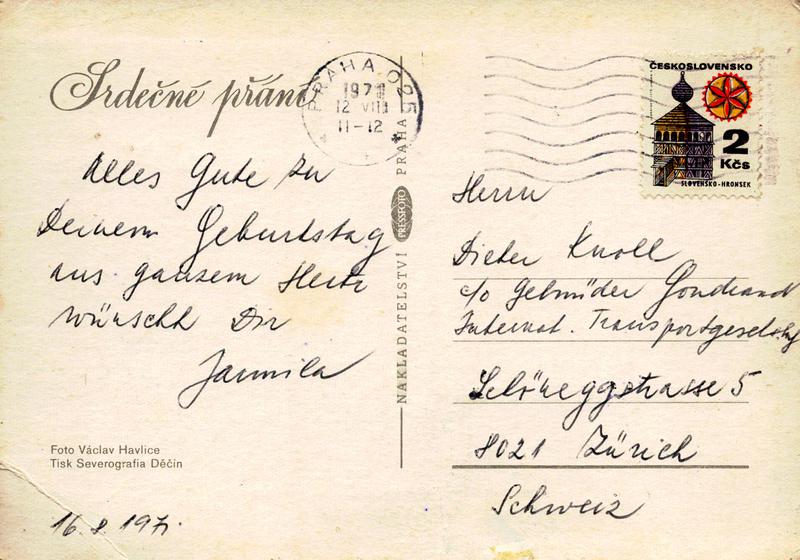 Srdečné přání
PRAHA 025
1971
12 VIII
11-12
ČESKOSLOVENSKO
2
Kčs
SLOVENSKO-HRONSEK
Alles Gute zu
Deinem Geburtstag
aus ganzem Hertz
wünscht Dir
Jarmila
Foto Václav Havlice
Tisk Severografia Děčín
16. 8. 1971.
NAKLADATELSTVÍ PRESSFOTO PRAHA
Herrn
Dieter Knoll
c/o Gebrüder Gondrand
Internat. Transportges
8021 Zürich
Schweiz